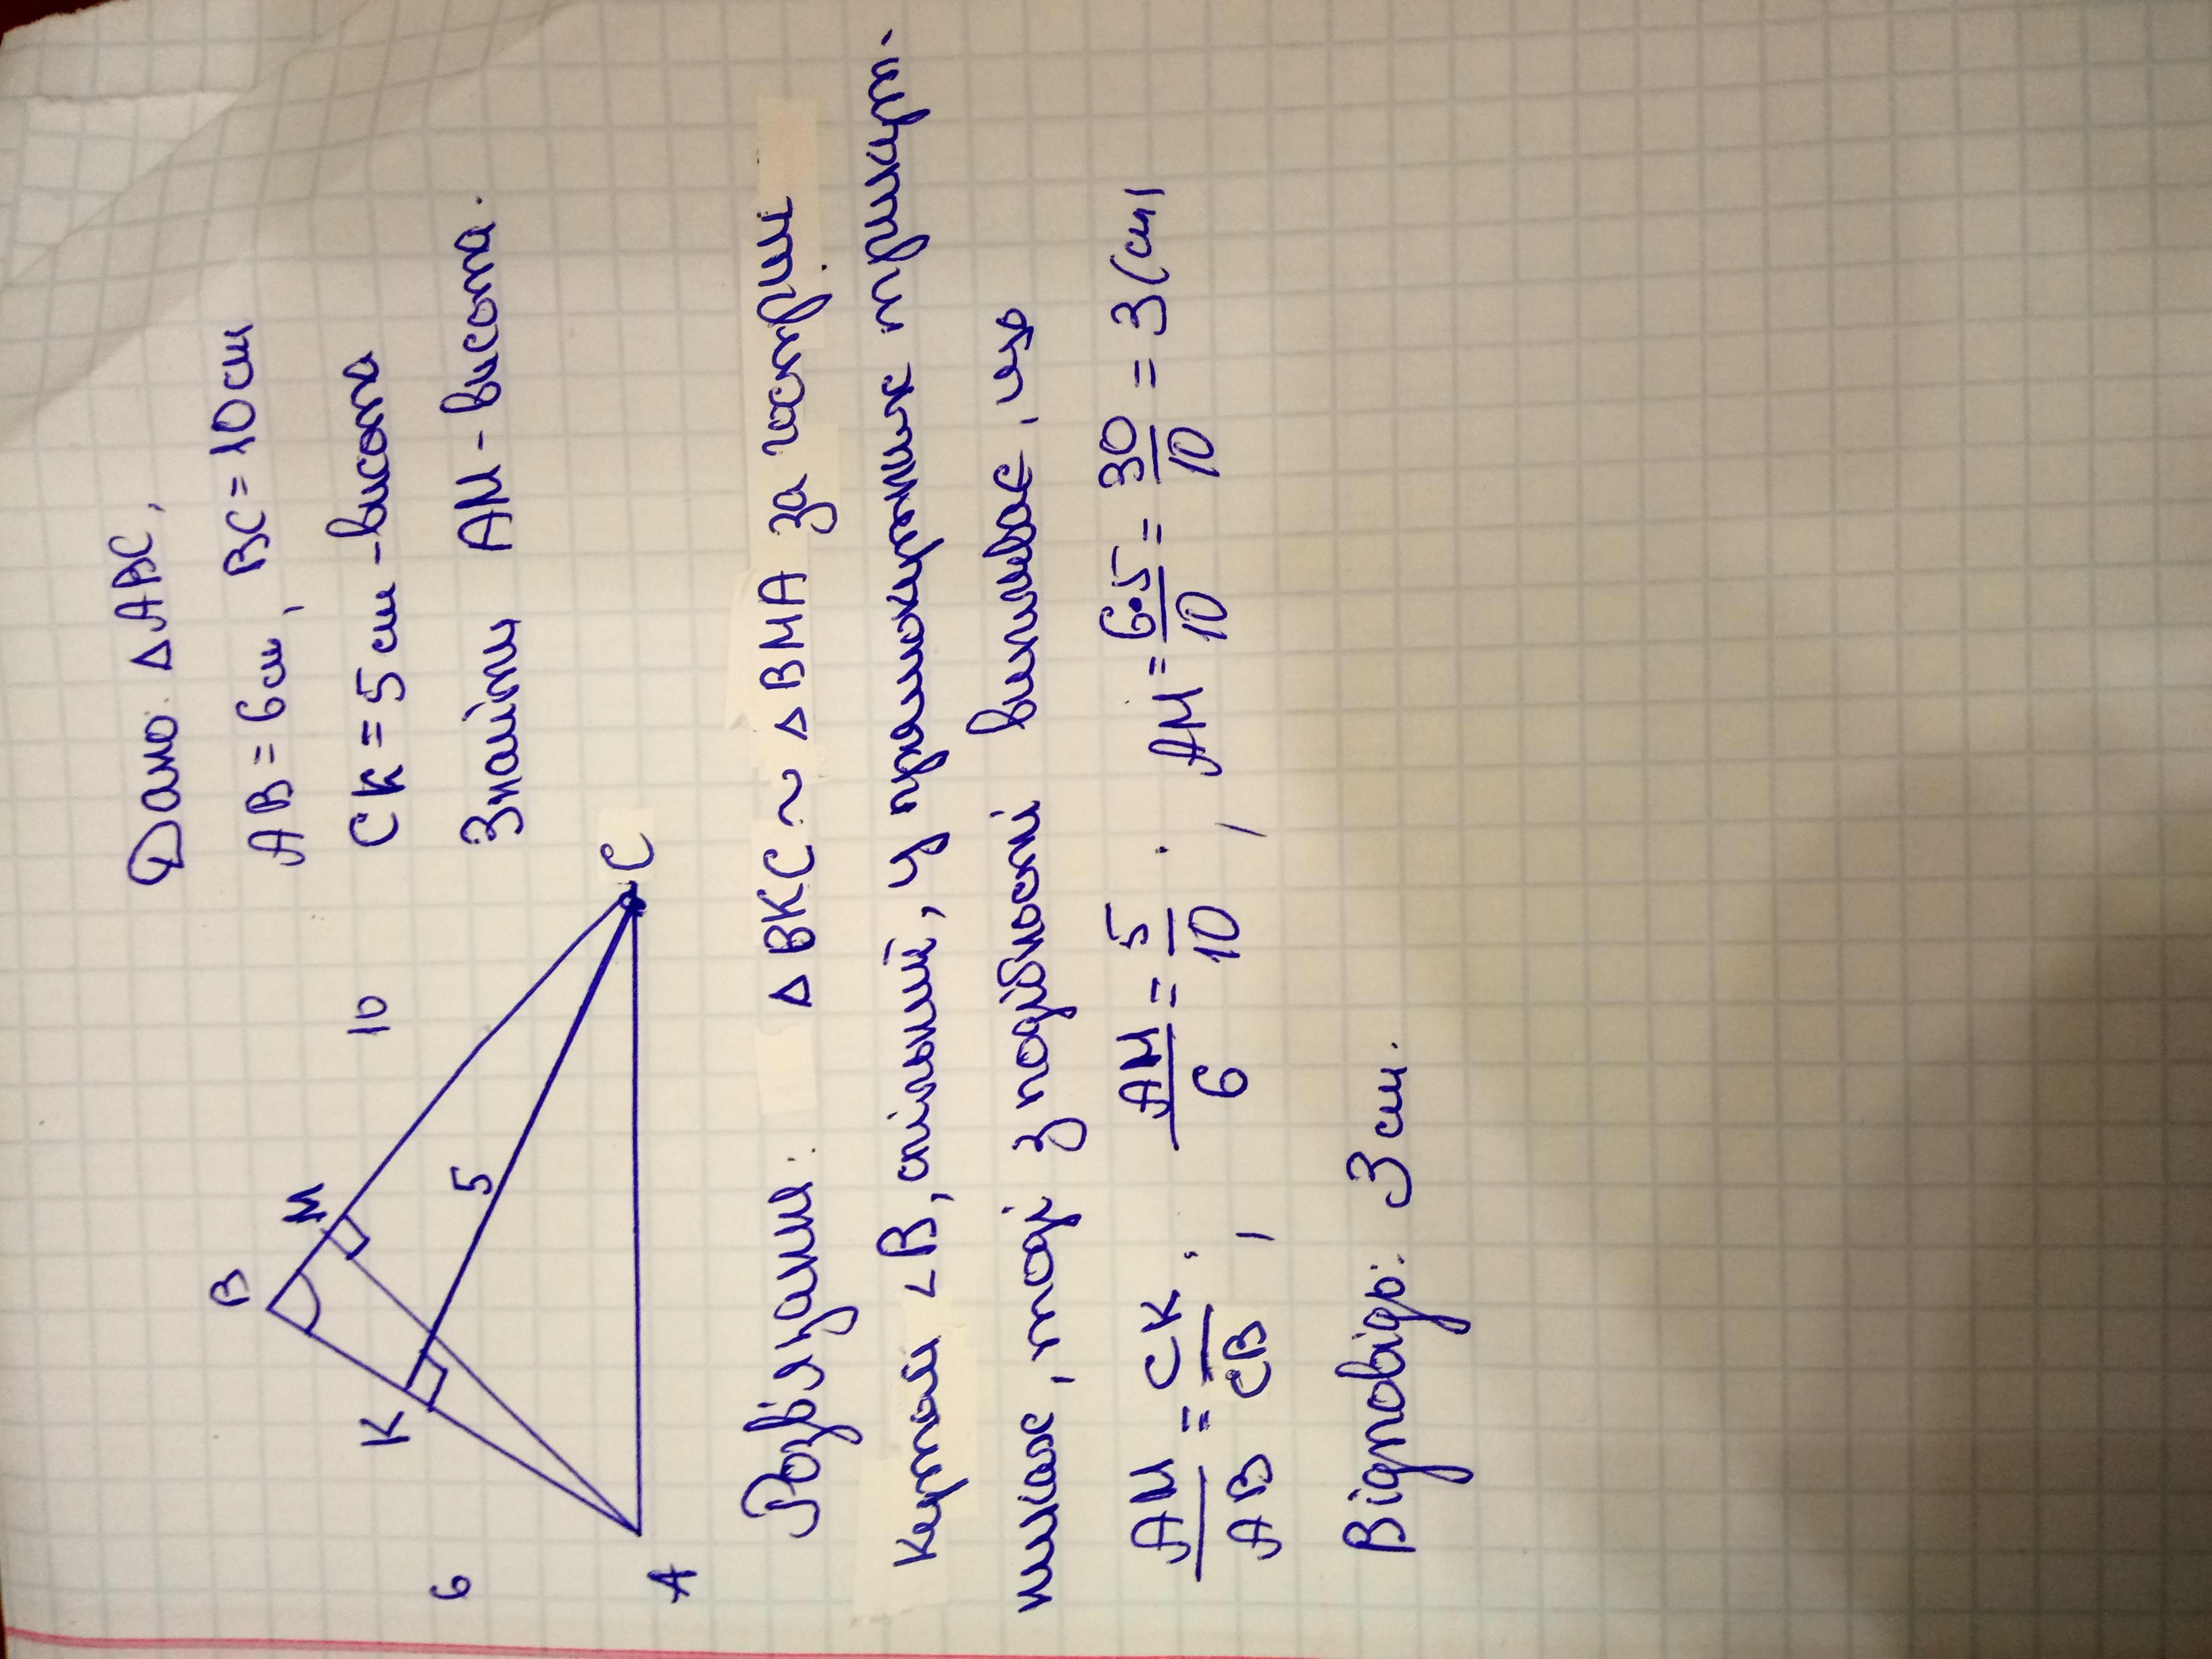 Дано: ΔABC,
AB = 6 см, BC = 10 см
CK = 5 см - висота
Знайти AM - висота.
B
M
K
10
5
6
A
C
Розв'язання: ΔBKC ~ ΔBMA за гострим
кутом ∠B, спільний, у прямокутних трикут-
никах, тоді з подібності
AM/AB = CK/CB; AM/6 = 5/10; AM = 6·5/10 = 30/10 = 3 (см)
Відповідь: 3 см.